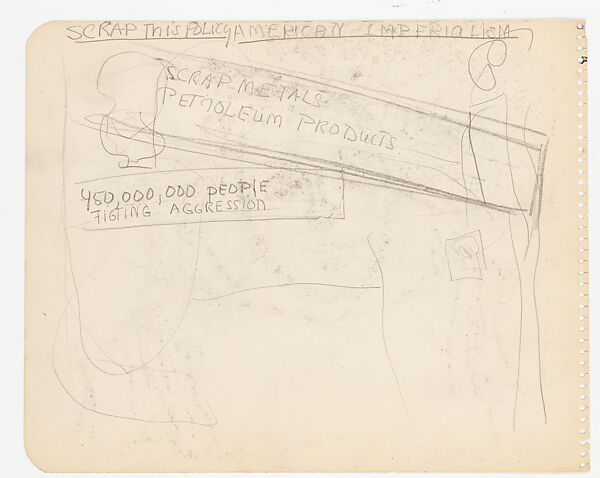 SCRAP THIS POLICY AMERICAN IMPERIALISM
SCRAP METALS
PETROLEUM PRODUCTS
450,000,000 PEOPLE
FIGTING AGGRESSION